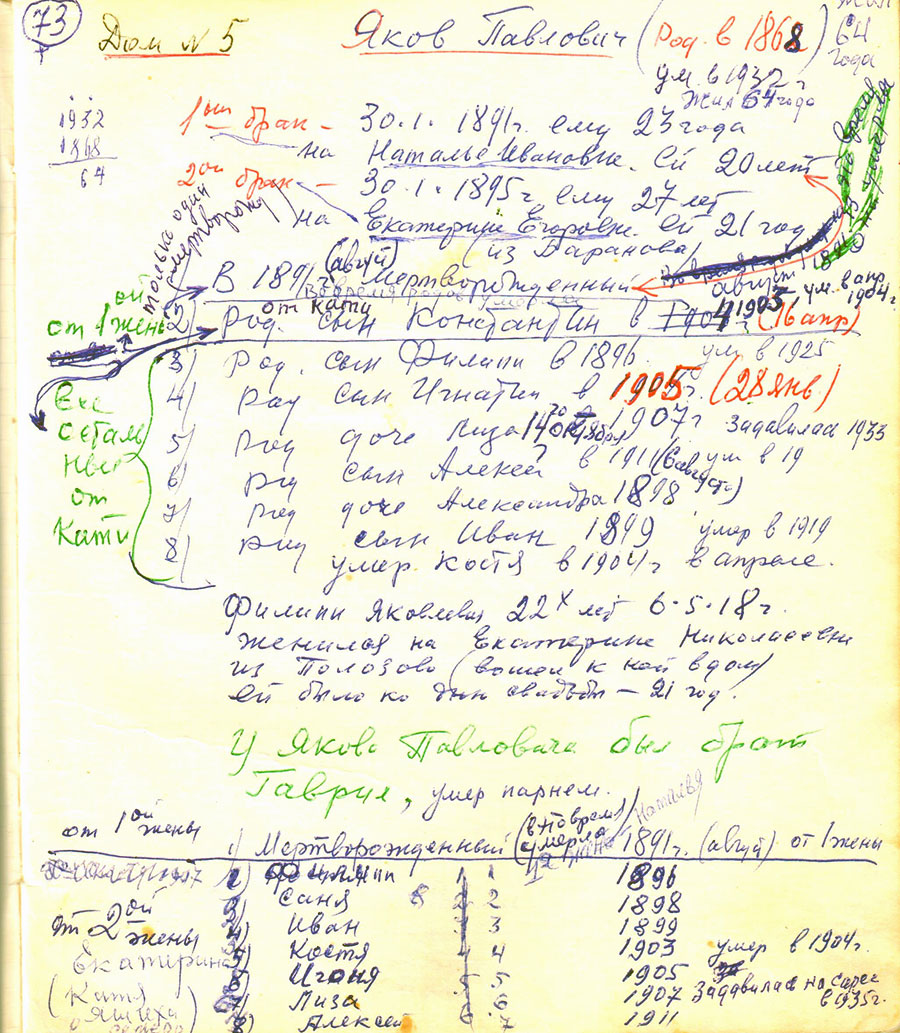 73
Дом N 5
Яков Павлович (Род. в 1868)
64 года
ум. в 1932 г
Жил 64 года
1932
1868
64
1ый брак — 30.1. 1891г. ему 23 года
на Наталье Ивановне. Ей 20 лет
2ой брак — 30.1. 1895г, ему 27 лет
на Екатерине Егоровне. ей 21 год
(из Баранова)
только один
мертворожд
В 1891г. (авгус) Мертворожденный
август 1891
от 1ой жены
от Кати
2) род. сын Константин в 1903 (16 апр)
ум. в апр. 1904г.
3) род. сын Филипп в 1896. ум в 1925
4) род сын Игнатий в 1905г. (28 янв)
5) род доче Лиза 1907г задавилас 1933
6) род сын Алексей в 1911 (6 августа) ум в 19
7) род доче Александра 1898
8) род сын Иван 1899 умер в 1919
умер Костя в 1904г в апреле.
Все
осталь
ные
от
Кати
Филипп Яковлевич 22х лет 6.5.18г.
женился на Екатерине Николаевне
из Полозово (вошел к ней в дом)
ей было ко дню свадьбы — 21 год.
У Якова Павловича был брат
Гаврил, умер парнем.
от 1ой жены
1) Мертворожденный 1891г. (авгус) от 1 жены
Наталья
2) Филипп 1 1 1896
Саня 2 2 1898
от 2ой жены
Иван 3 3 1899
Костя 4 4 1903 умер в 1904г.
Екатерина
Игоня 5 5 1905
(Катя
Лиза 6 6 1907 Задавилас на сарае
в 1935г.
Яшиха
8) Алексей 7 1911